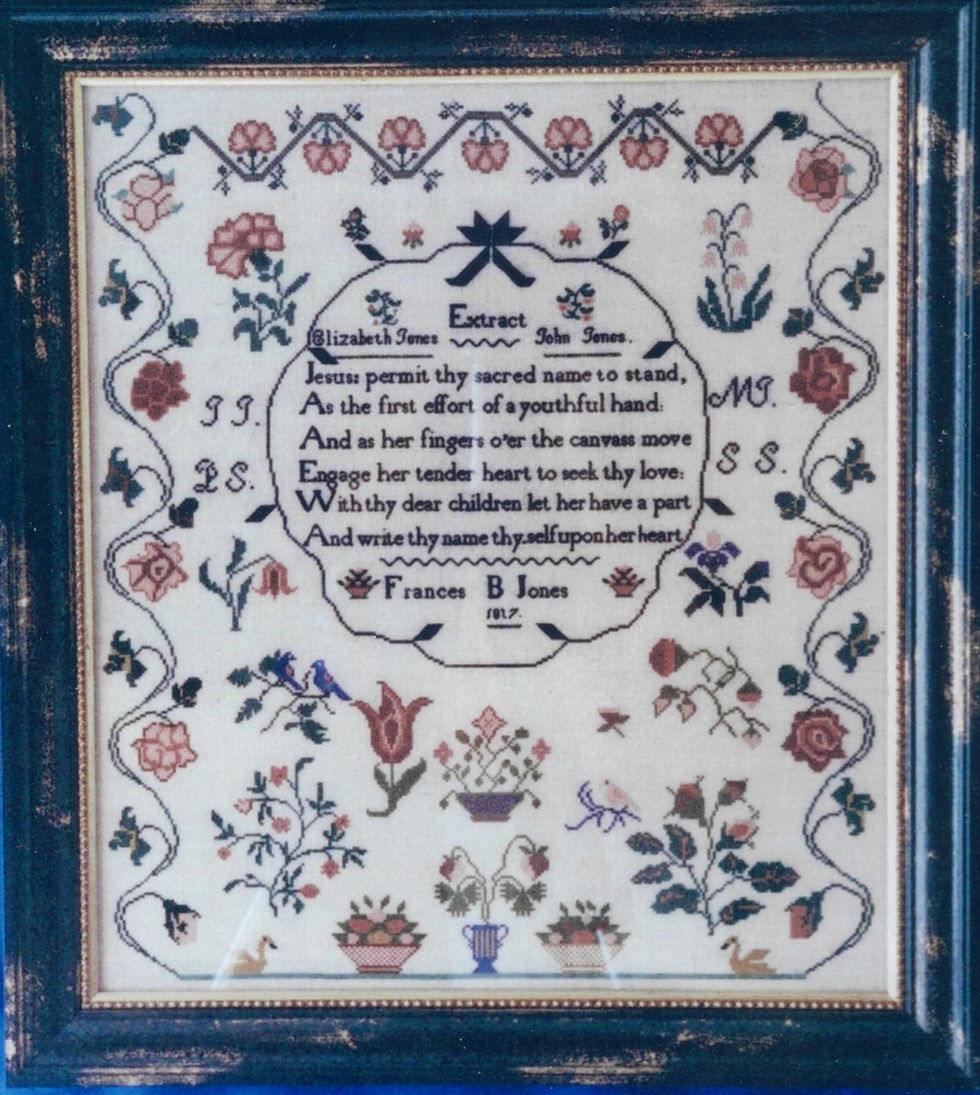 Extract
Elizabeth Jones John Jones.
Jesus: permit thy sacred name to stand,
As the first effort of a youthful hand:
And as her fingers o'er the canvass move
Engage her tender heart to seek thy love:
With thy dear children let her have a part
And write thy name thy.self upon her heart
J J. MJ.
P S. S S.
Frances B Jones
1817.